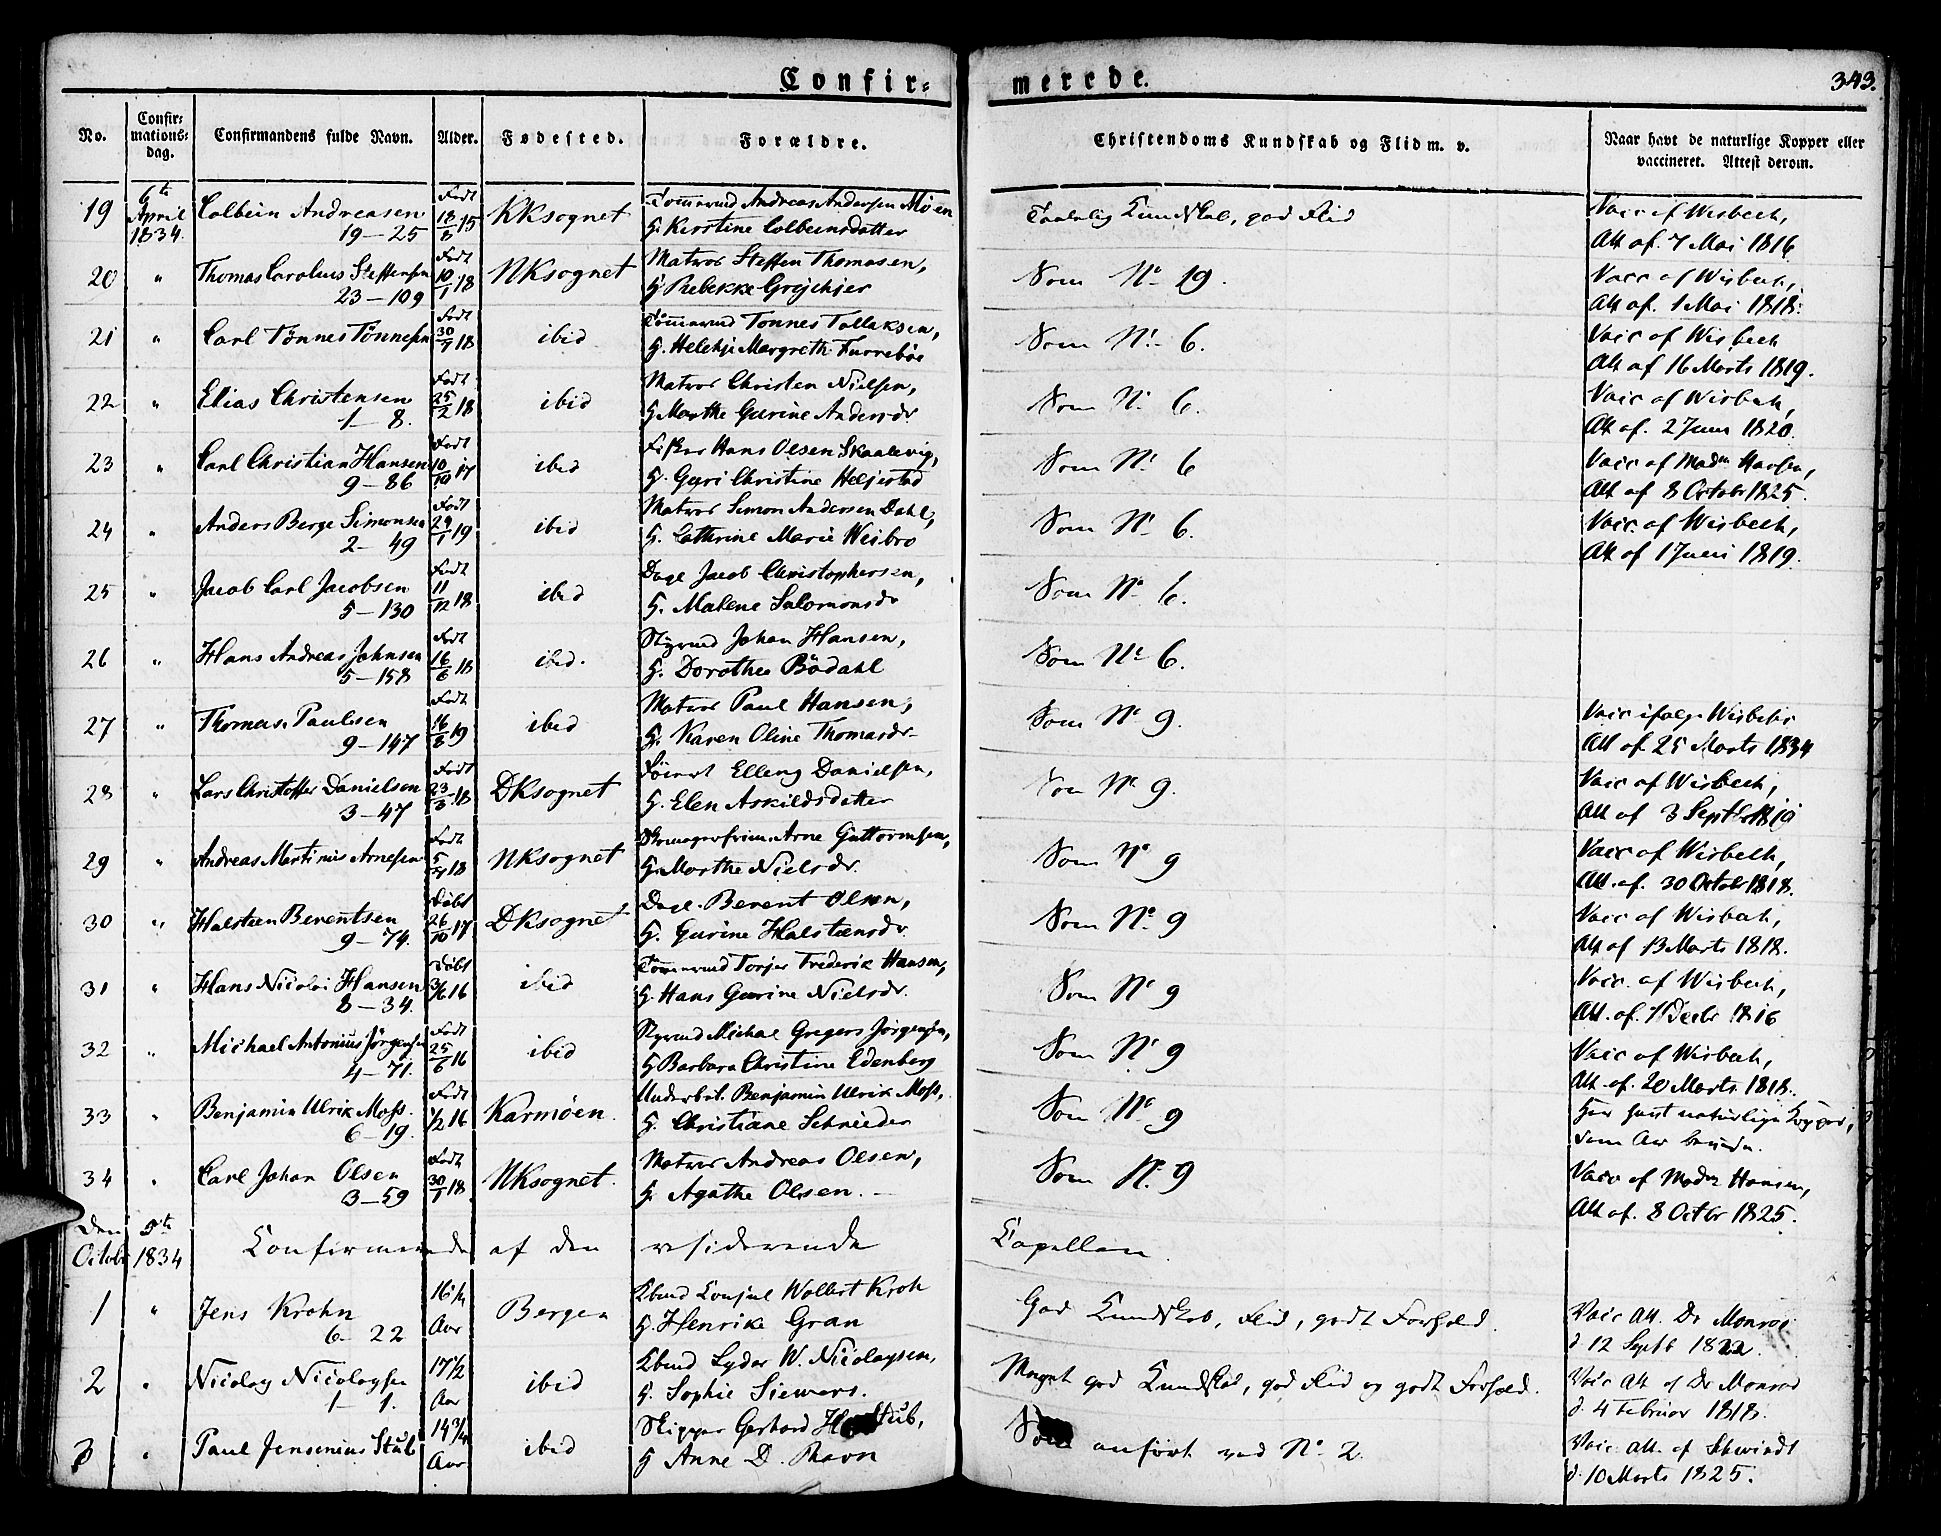 Confir-
merede.
343.
No.
Confir-
mations-
dag.
Confirmandens fulde Navn.
Alder.
Fødested.
Forældre.
Christendoms Kundskab og Flid m. v.
Naar havt de naturlige Kopper eller
vaccineret. Attest derom.
19 6te April 1834. Colbein Andreasen 19-25 Født 18/8 15 KKsognet Tømmermd Andreas Andersen Möen H. Kirstine Colbeinsdatter Taalelig Kundskab, god Flid Vacc af Wisbech, Att af. 7 Mai 1816
20 " Thomas Carolus Steffensen 23-109 Født 10/1 18 NKsognet Matros Steffen Thomasen, H. Rebekke Som No 19. Vacc af Wisbech, Att af. 1 Mai 1818.
21 " Carl Tønnes Tønnesen Født 30/7 18 ibid Tömermd Tönnes Tollaksen, H. Margreth Furreböe Som No 6. Vacc af Wisbech Att af 16 Marts 1819.
22 " Elias Christensen 1-8. Født 25/2 18 ibid Matros Christen Nielsen, H. Marthe Gurine Andersdr Som No 6. Vacc af Wisbech, Att af. 2 Juni 1820.
23 " Carl Christian Hansen 9-86 Født 10/10 17 ibid Fisker Hans Olsen Skaalevig, H. Guri Christine Heljestad Som No 6 Vacc af Madm Hansen, Att af 8 Octobr 1825.
24 " Anders Berge Simonsen 2-49 Født 29/1 19 ibid Matros Simon Andersen Dahl, H. Cathrine Marie Weibro Som No 6. Vacc af Wisbech, Att af 1 Juni 1819.
25 " Jacob Carl Jacobsen 5-130 Født 11/12 18 ibid Dagl Jacob Christophersen, H. Malene Salomonsdr Som No 6.
26 " Hans Andreas Johnsen 5-158 Født 16/6 18 ibid. Styrmd Johan Hansen, H. Dorothea Bödahl Som No 6.
27 " Thomas Paulsen 9-147 Født 16/8 19 ibid Matros Paul Hansen, H. Karen Oline Thomasdr Som No 9. Vacc ifølge Wisbechs Att af. 25 Marts 1834
28 " Lars Christoffer Danielsen 3-47 Født 23/3 18 DKsognet Elleng Danielsen, H. Elen Askildsdatter Som No 9. Vacc af Wisbech, Att af 3 Septbr 1819
29 " Andreas Martinus Arnesen Født 5/4 18 NKsognet Arne Guttormsen, H. Marthe Nielsdr. Som No 9 Vacc af Wisbech, Att af. 30 Octobr 1818.
30 " Halsteen Berentsen 9-74. Døbt 26/10 17 DKsognet Dagl. Berent Olsen, H. Gurine Halsteensdr. Som No. 9 Vacc af Wisbech, Att af 13 Marts 1818.
31 " Hans Nicolai Hansen 8-34. Døbt 3/6 16 ibid Tömermd Torjer Frederik Hansen, H. Hans Gurine Nielsdr. Som No 9 Vacc. af Wisbech, Att. af. 7 Decbr 1816
32 " Michael Antonius Jörgensen 4-71. Født 25/6 16 ibid Styrmd Michal Gregers Jörgensen, H Barbara Christine Edenberg Som No 9 Vacc af Wisbech, Att af. 20 Marts 1818.
33 " Benjamin Ulrik Moss. 6-19. Født 1/2 16 Karmöen. Underbet. Benjamin Ulrik Moss, H. Christiane Schrieder Som No 9 Har havt naturlige Kopper, som Ar
34 " Carl Johan Olsen 3-59 Født 30/1 18 NKsognet. Matros Andreas Olsen, H. Agathe Olsen. Som No. 9 Vacc af Madm Hansen, Att af. 8 Octbr 1825.
Den 5te October 1834 Confirmerede af den residerende Capellan.
1 " Jens Krohn 6-22 16 1/4 Aar Bergen Kbmd Consul Wollert Kroh H. Henrike Gran God Kundskab, Flid, godt Forhold. Vacc Att. Dr Monrad d. 12 Septb 1822.
2 " Nicolay Nicolaysen 1-1. 17 1/2 Aar ibid Kbmd Lyder W. Nicolaysen, H. Sophie Siewers. Meget god Kundskab, god Flid og godt Forhold. Vacc Att af Dr Monrad d. 4 Februar 1818.
3 " Paul Jensenius Stub 14 3/4 Aar ibid Skipper Gerhard Stub, H Anne D. Ravn Som anført ved No. 2. Vacc. Att. af Schwindt d. 10 Marts 1825.